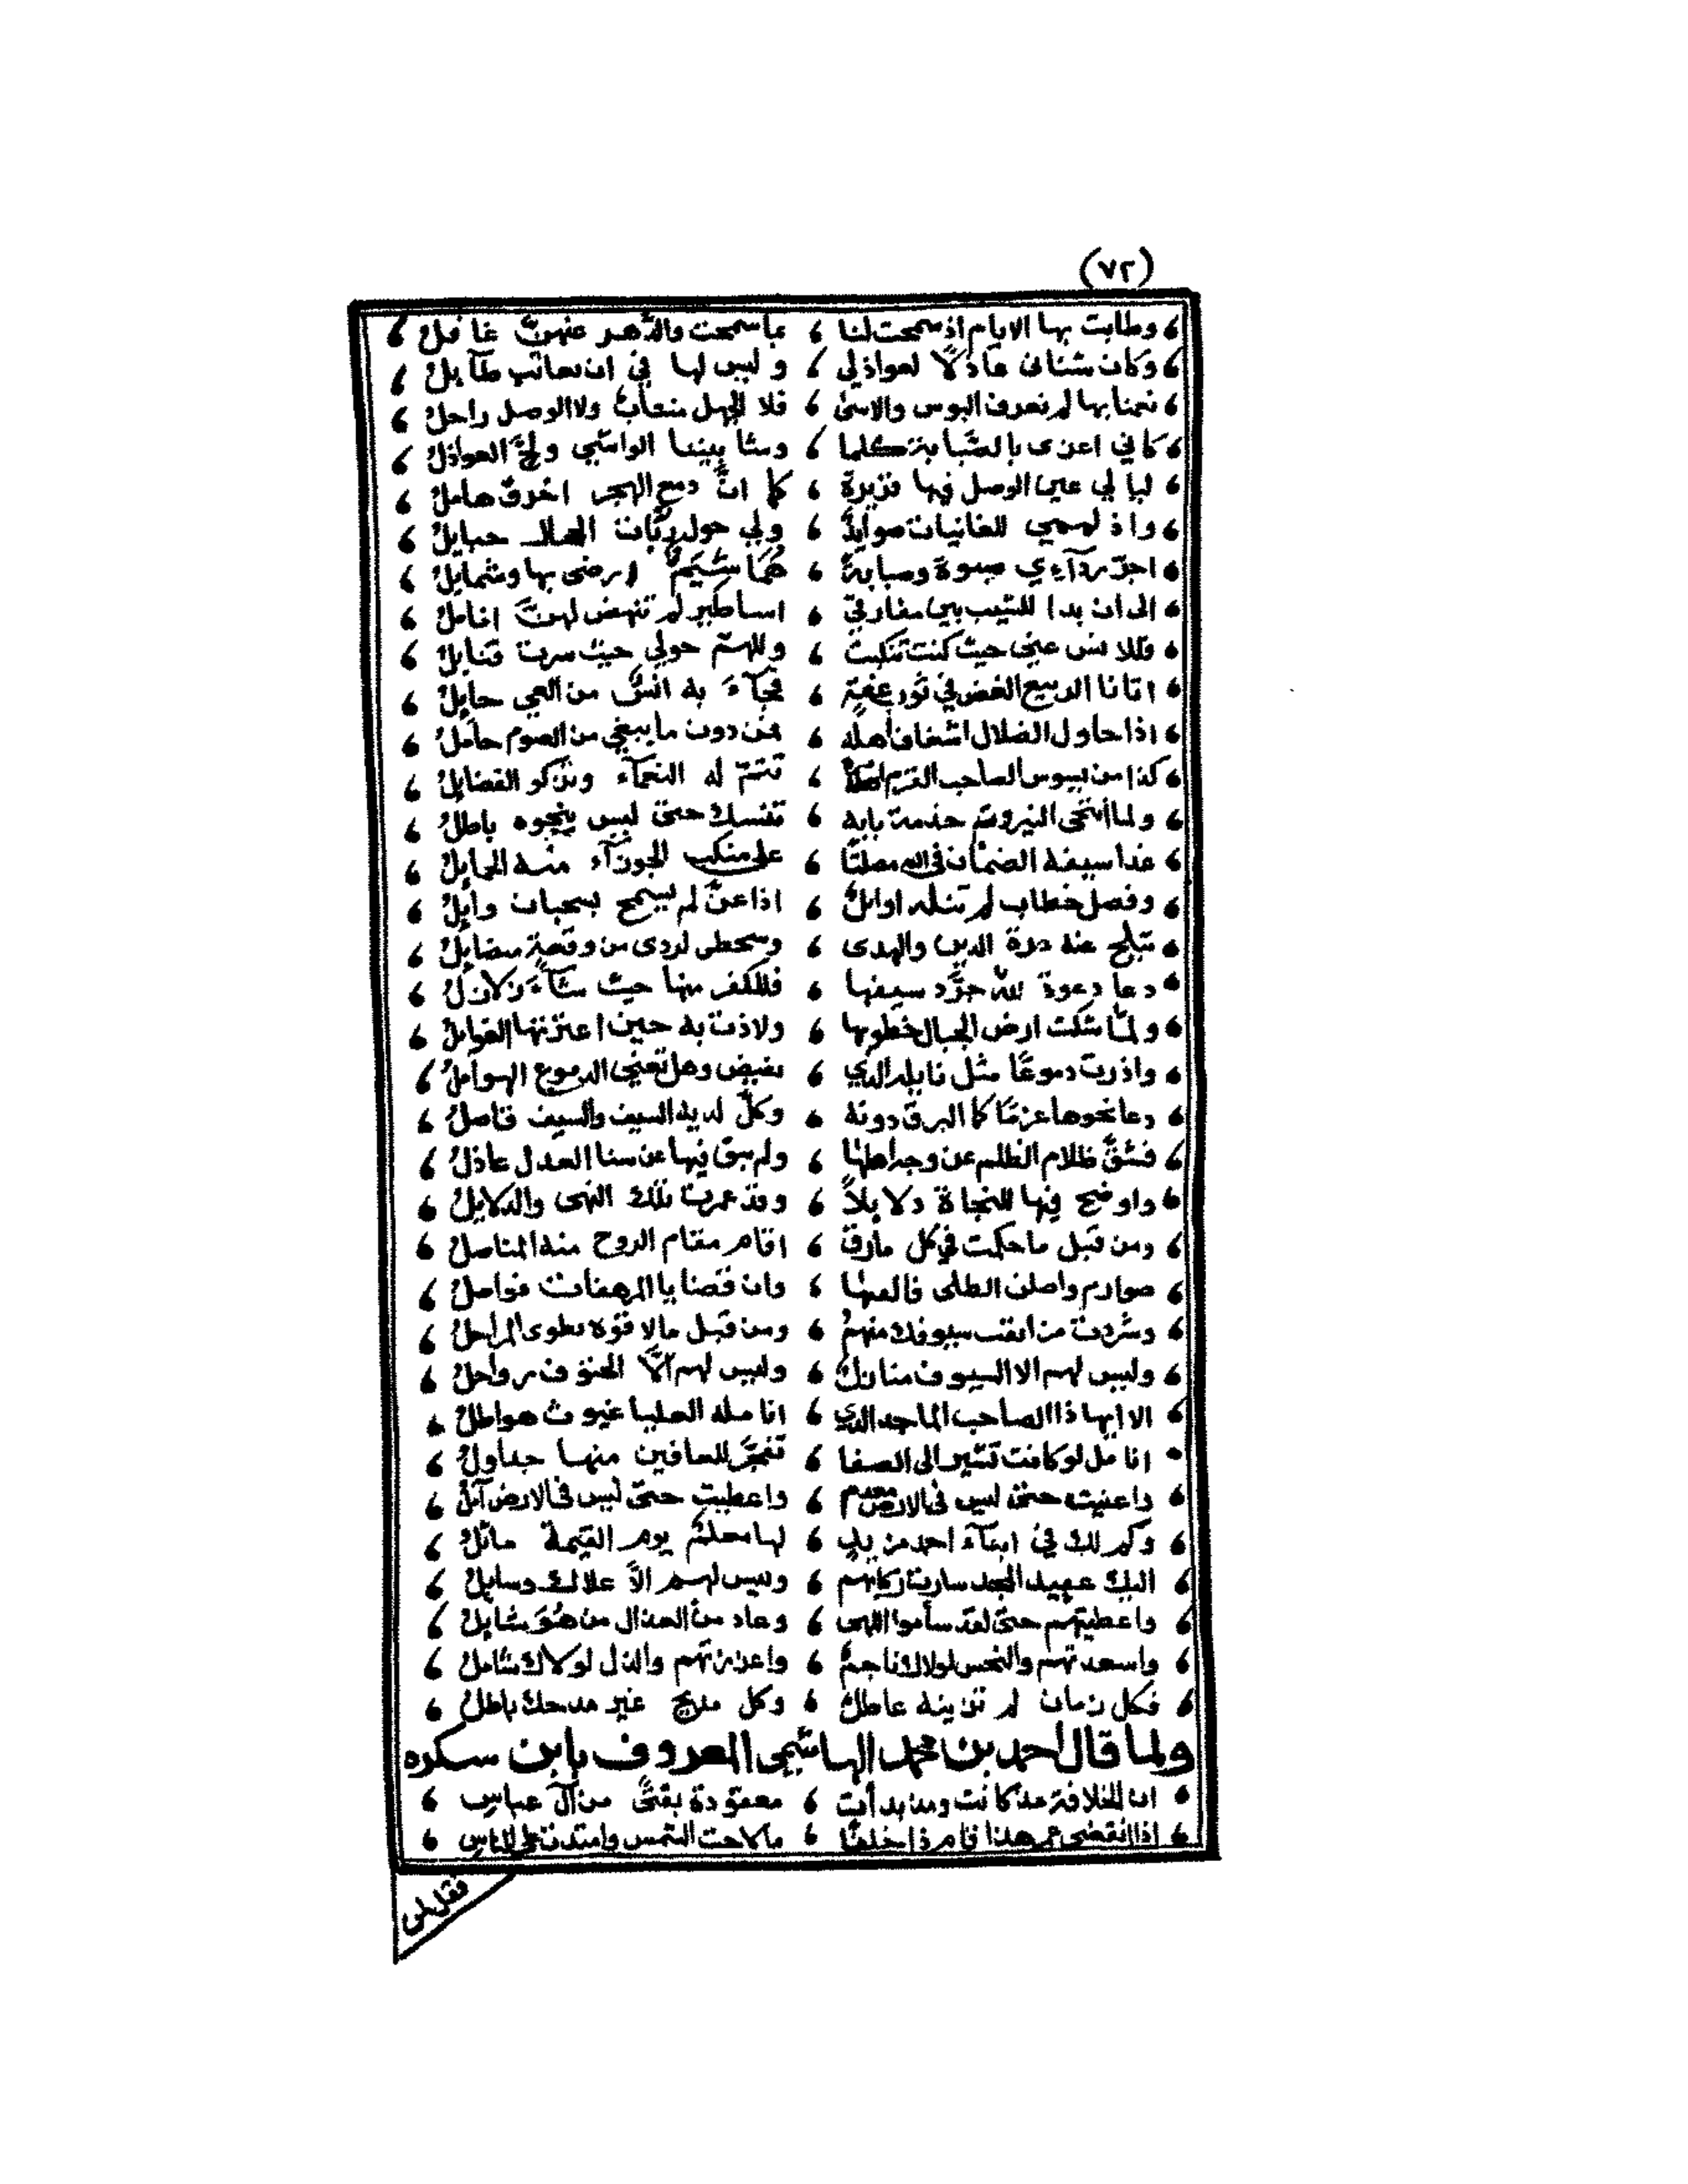 (٧٢)
وطابت بها الايام اذ سمحت لنا ، بما سمحت والدهر عنهن غافل ،
وكان شنانى عاذلا لعواذلي ، وليس لها في ان تعاتب طآيل ،
نعمنا بها لم نعرف البوس والاسى ، فلا الجهل منجاب ولا الوصل راحل ،
كاني اعزى بالصبابة كلما ، وشا بيننا الواشي ولج العواذل ،
ليالي عين الوصل فيها قريرة ، كما انّ دمع الهجر اخرق هامل ،
واذ لممي للغانيات صوايد ، ولي حول ربّات الحجال حبايل ،
اجرّ ردآءي صبوة وصبابة ، هما شيم ارضى بها وشمايل ،
الى ان بدا للشيب بين مفارقي ، اساطير لم تنهض لهنّ انامل ،
فللانس عني حيث كنت تنكبت ، وللهمّ حولي حيث سرت قنابل ،
اتانا الربيع الغض في نور غضة ، فجآءَ به انس من العي حايل ،
اذا حاول الضلال اشغاف اهله ، فمن دون ما يبغي من الصوم حامل ،
كذا من يسوس الصاحب القرم ، تتمّ له النعمآء وتزكو الفضايل ،
ولما انتحى النيروز خدمة بابه ، تنسك حتى ليس ينجوه باطل ،
غدا سيفه الضمان في الله مصلتًا ، على منكب الجوزآء منه الحمايل ،
وفصل خطاب لم تنله اوايل ، اذا عنّ لم يسمح بسحبان وايل ،
تبلج عنه درة الدين والهدى ،
دعا دعوة لله جرّد سيفها ، فللكفر منها حيث شآءَ زلازل ،
ولمّا شكت ارض الجبال خطوبها ، ولاذت به حين اعترتها الغوايل ،
واذرت دموعًا مثل نايله الذي ، يفيض وهل تغني الدموع الهوامل ،
دعا نحوها عزمًا كما البرق دونه ، وكلّ لديه السيف والسيف فاصل ،
فشقّ ظلام الظلم عن وجه اهلها ، ولم يبق فيها عن سنا العدل عاذل ،
واوضح فيها للنجاة دلايلاً ، وقد عمرت تلك النهى والدلايل ،
ومن قبل ما حكمت في كل مازق ، اقام مقام الروح منه المناصل ،
صوارم واصلن الطلى فالفنها ، وان قضايا المرهفات فواصل ،
وشردت من ابقت سيوفك منهم ، ومن قبل ما لاقوه تطوى المراحل ،
وليس لهم الا السيوف منازل ، وليس لهم الّا الحتوف رواحل ،
الا ايها ذا الصاحب الماجد الذي ، انامله العليا غيوث هواطل ،
انامل لو كانت تشير الى الصفا ، تفجّر للعافين منها جداول ،
واغنيت حتى ليس في الارض معدم ، واعطيت حتى ليس في الارض آمل ،
وكم لك في ابنآء احمد من يد ، لها معلم يوم القيمة ماثل ،
اليك عميد المجد سارت ركابهم ، وليس لهم الّا علاك وسايل ،
واعطيتهم حتى لقد سأموا اللهى ، وعاد من العذال من هو سايل ،
واسعدتهم والنحس لولاك ناجم ، واعززتهم والذل لولاك شامل ،
فكل زمان لم تزينه عاطل ، وكل مديح غير مدحك باطل ،
ولما قال احمد بن محمد الهاشمي المعروف بابن سكره
ان الخلافة مذ كانت ومذ بدأت ، معقودة بفتى من آل عباس ،
اذا انقضى عمر هذا قام ذا خلفًا ، ما لاحت الشمس وامتدت على الناس ،
فقل لمن